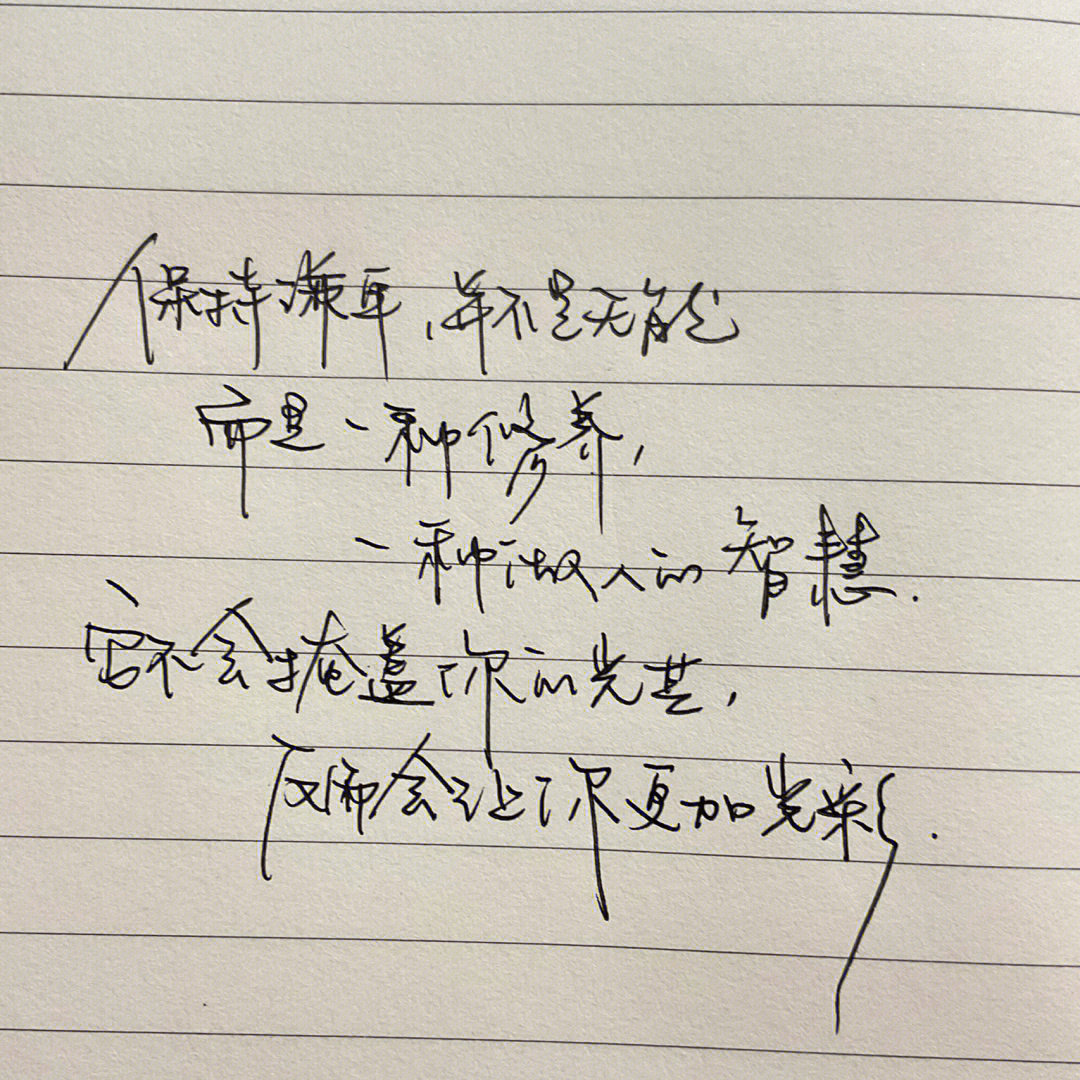 保持谦卑,并不是无能
而是一种修养,
一种做人的智慧.
它不会掩盖你的光芒,
反而会让你更加光彩.